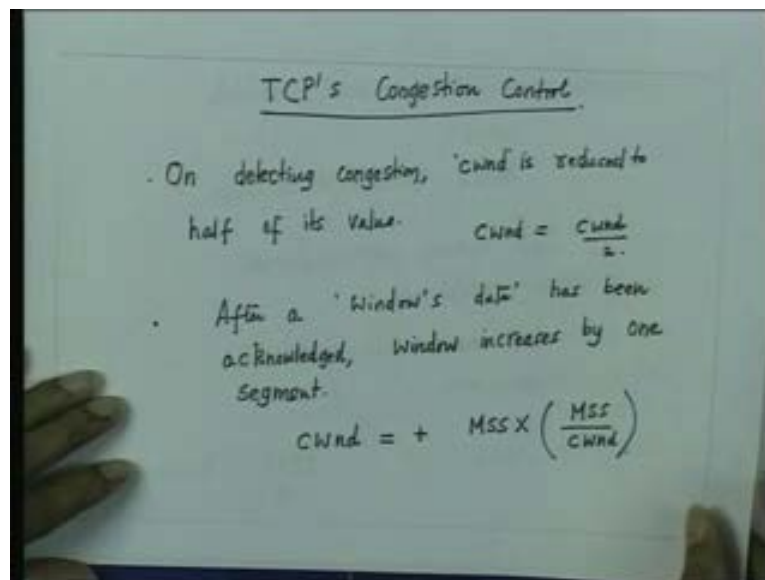 TCP's Congestion Control.
. On detecting congestion, 'cwnd' is reduced to
half of its value. cwnd = cwnd/2.
. After a 'window's data' has been
acknowledged, window increases by one
segment.
cwnd = + MSS X (MSS/cwnd)